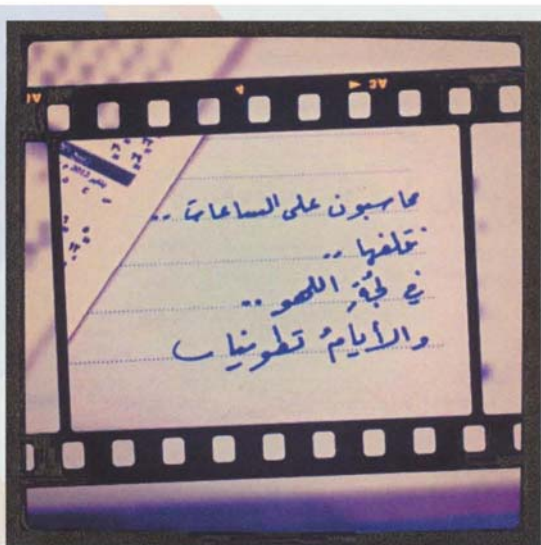 محاسبون على الساعات ..
نتلفها ..
في لجةِ اللهو ..
والأيامُ تطوينا